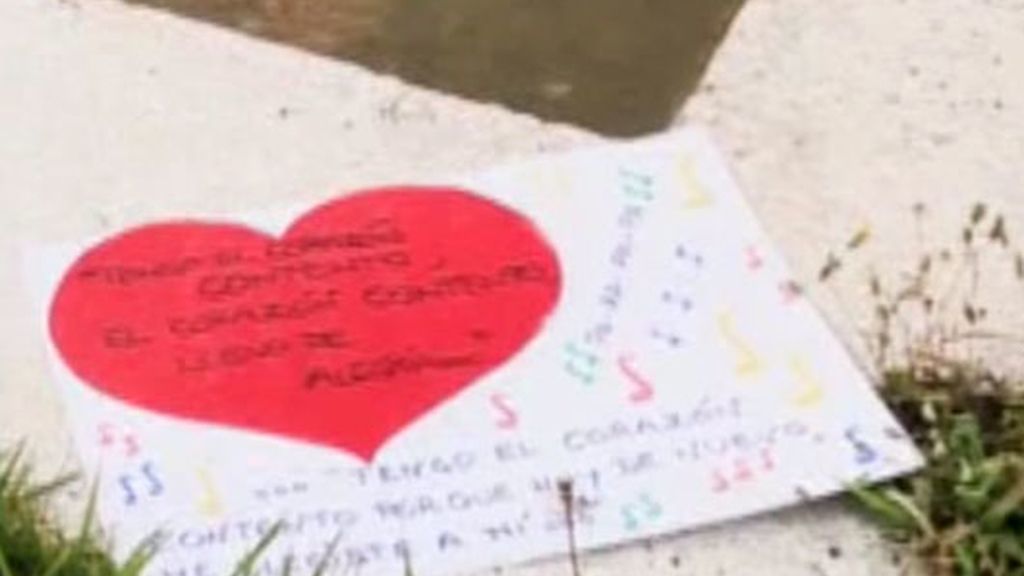 "TENGO EL CORAZÓN
CONTENTO,
EL CORAZÓN CONTENTO
LLENO DE
ALEGRÍA..."
... TENGO EL CORAZÓN
CONTENTO PORQUE HOY DE NUEVO
A MÍ